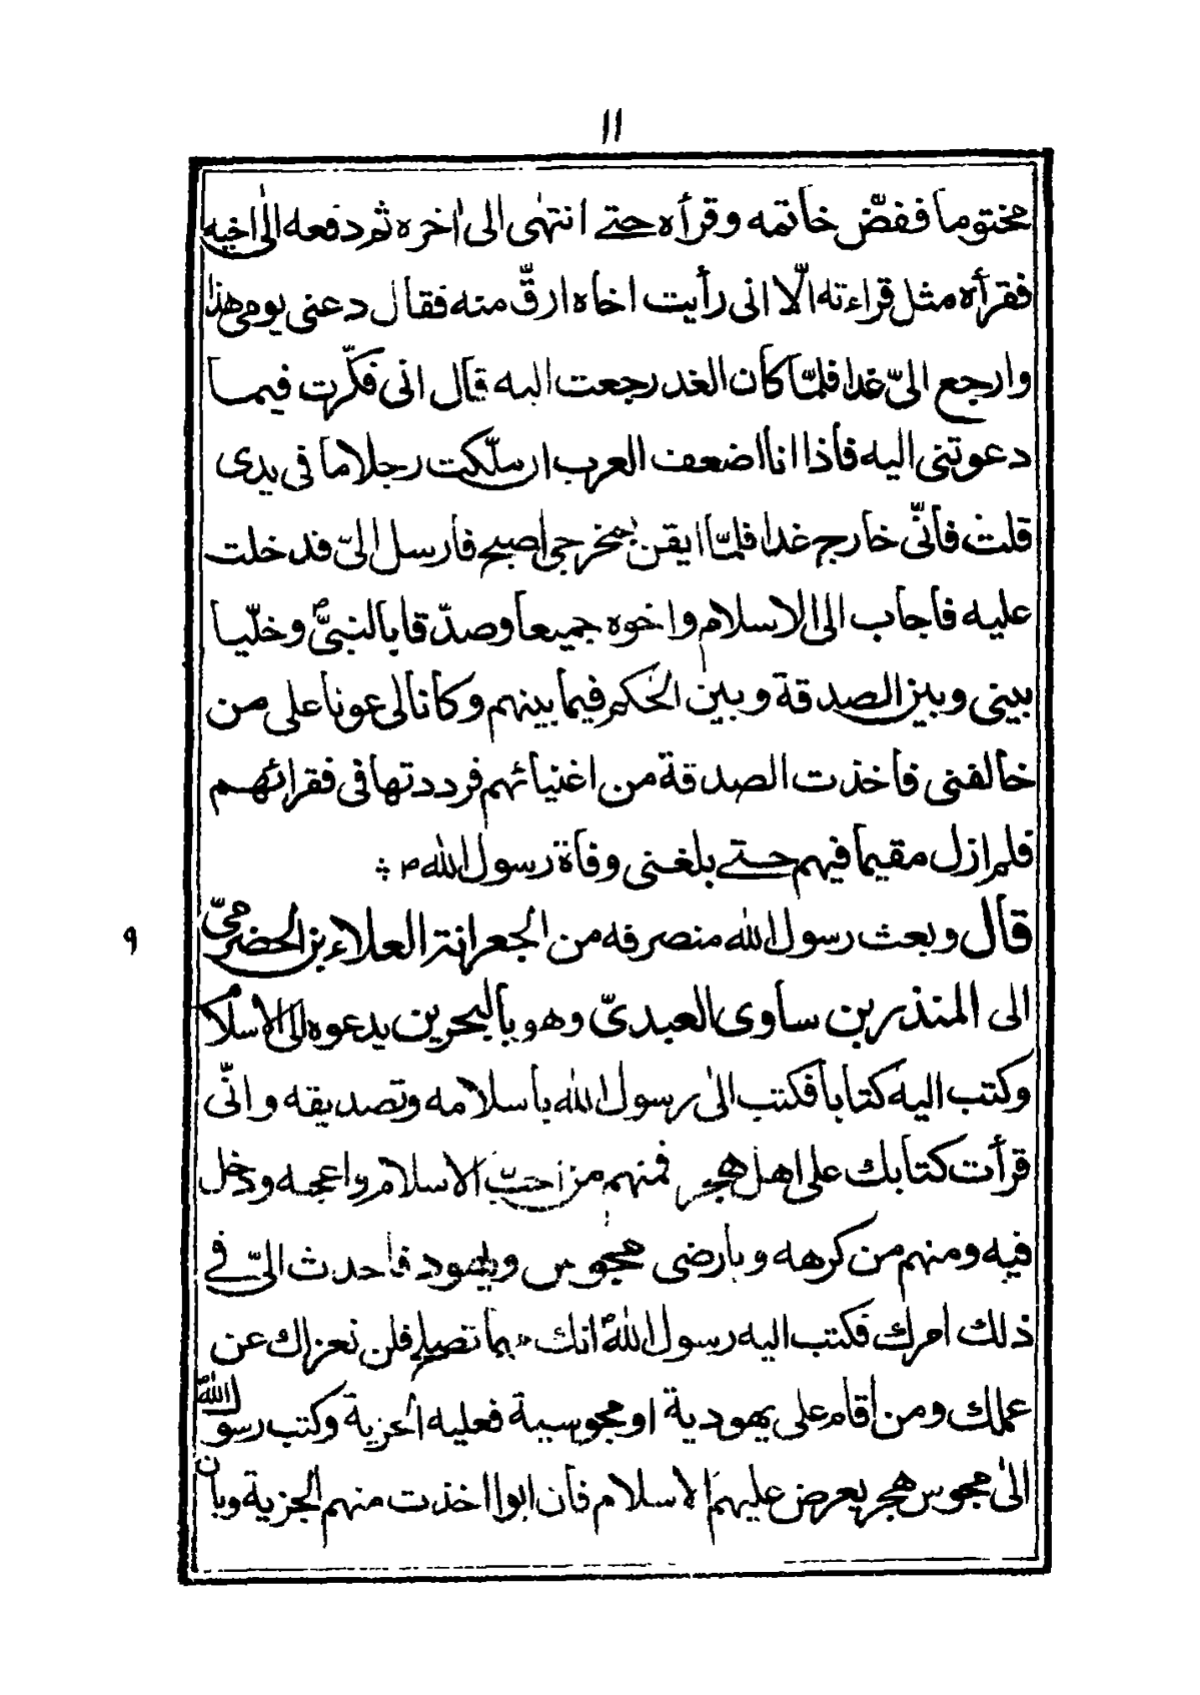 ١١
مختوما ففضّ خاتمه وقرأه حتے انتهٰى الى اٰخره ثم دفعه الٰى اخيه
فقرأه مثل قراءته الّا انى رأيت اخاه ارقّ منه فقال دعنى يومى هذا
وارجع الىّ غدا فلمّا كان الغد رجعت اليه قال انى فكّرت فيما
دعوتنى اليه فأذا انا اضعف العرب ان ملّكت رجلا ما فى يدى
قلت فأنّى خارج غدا فلمّا ايقن بمخرجى اصبح فأرسل الىّ فدخلت
عليه فأجاب الى الاسلام واخوه جميعا وصدّقا بالنبىّ ص وخلّيا
بينى وبين الصدقة وبين الحكم فيما بينهم وكانا لى عونا على من
خالفنى فأخذت الصدقة من اغنيائهم فرددتها فى فقرائهم
فلم ازل مقيما فيهم حتے بلغنى وفاة رسول الله ص
٩
قال وبعث رسول الله منصرفه من الجعرانة العلاء بن الحضرمىّ
الى المنذر بن ساوى العبدىّ وهو بالبحرين يدعوه الى الاسلام
وكتب اليه كتابا فكتب الٰى رسول الله بأسلامه وتصديقه وانّى
قرأت كتابك على اهل هجر فمنهم من احبّ الاسلام واعجبه ودخل
فيه ومنهم من كرهه وبارضى مجوس ويهود فأحدث الىّ فے
ذلك امرك فكتب اليه رسول الله ص انك مهما تصلح فلن نعزلك عن
عملك ومن اقام على يهودية او مجوسية فعليه الجزية وكتب رسول الله
الٰى مجوس هجر يعرض عليهم الاسلام فأن ابوا اخذت منهم الجزية وبأن